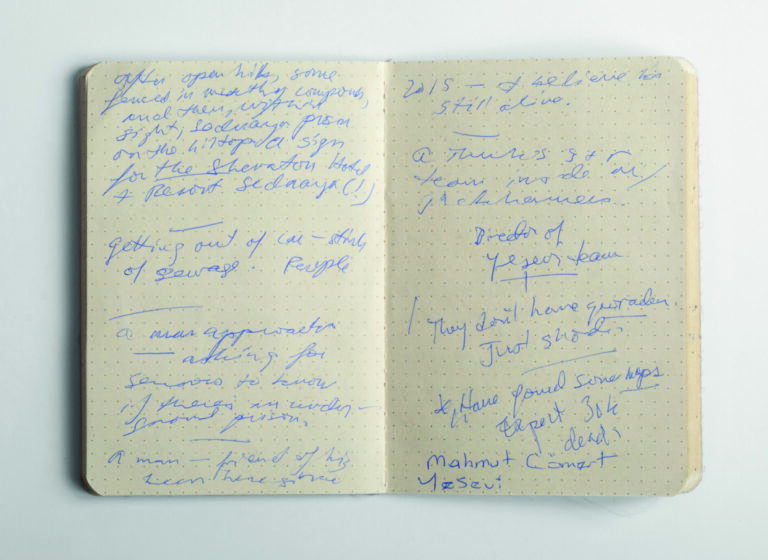 after open hills, some
fenced in wealthy compounds,
and then, within
sight, Sednaya prison
on the hilltop. A sign
for the Sheraton Hotel
+ Resort Sednaya (!)
getting out of car - stink
of sewage. People
a man approaches
— asking for
sensors to know
if there's an under-
ground prison.
A man — friend of his
been here since
2015 — I believe he's
still alive.
team inside w/
Director of
Yesevi team
They don't have
Just
Have found some maps
Expect 30k
dead.
Mahmut Cömert
Yesevi